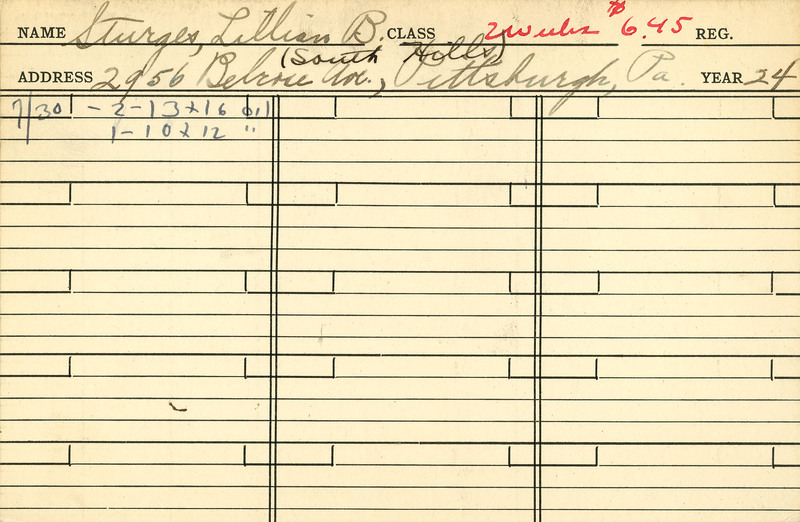 NAME Sturges, Lillian B. CLASS 2 weeks $6.45 REG.
(South Hills)
ADDRESS 2956 Belrose Ave., Pittsburgh, Pa. YEAR 24
7/30 - 2 - 13 x 16 oil
1 - 10 x 12 "